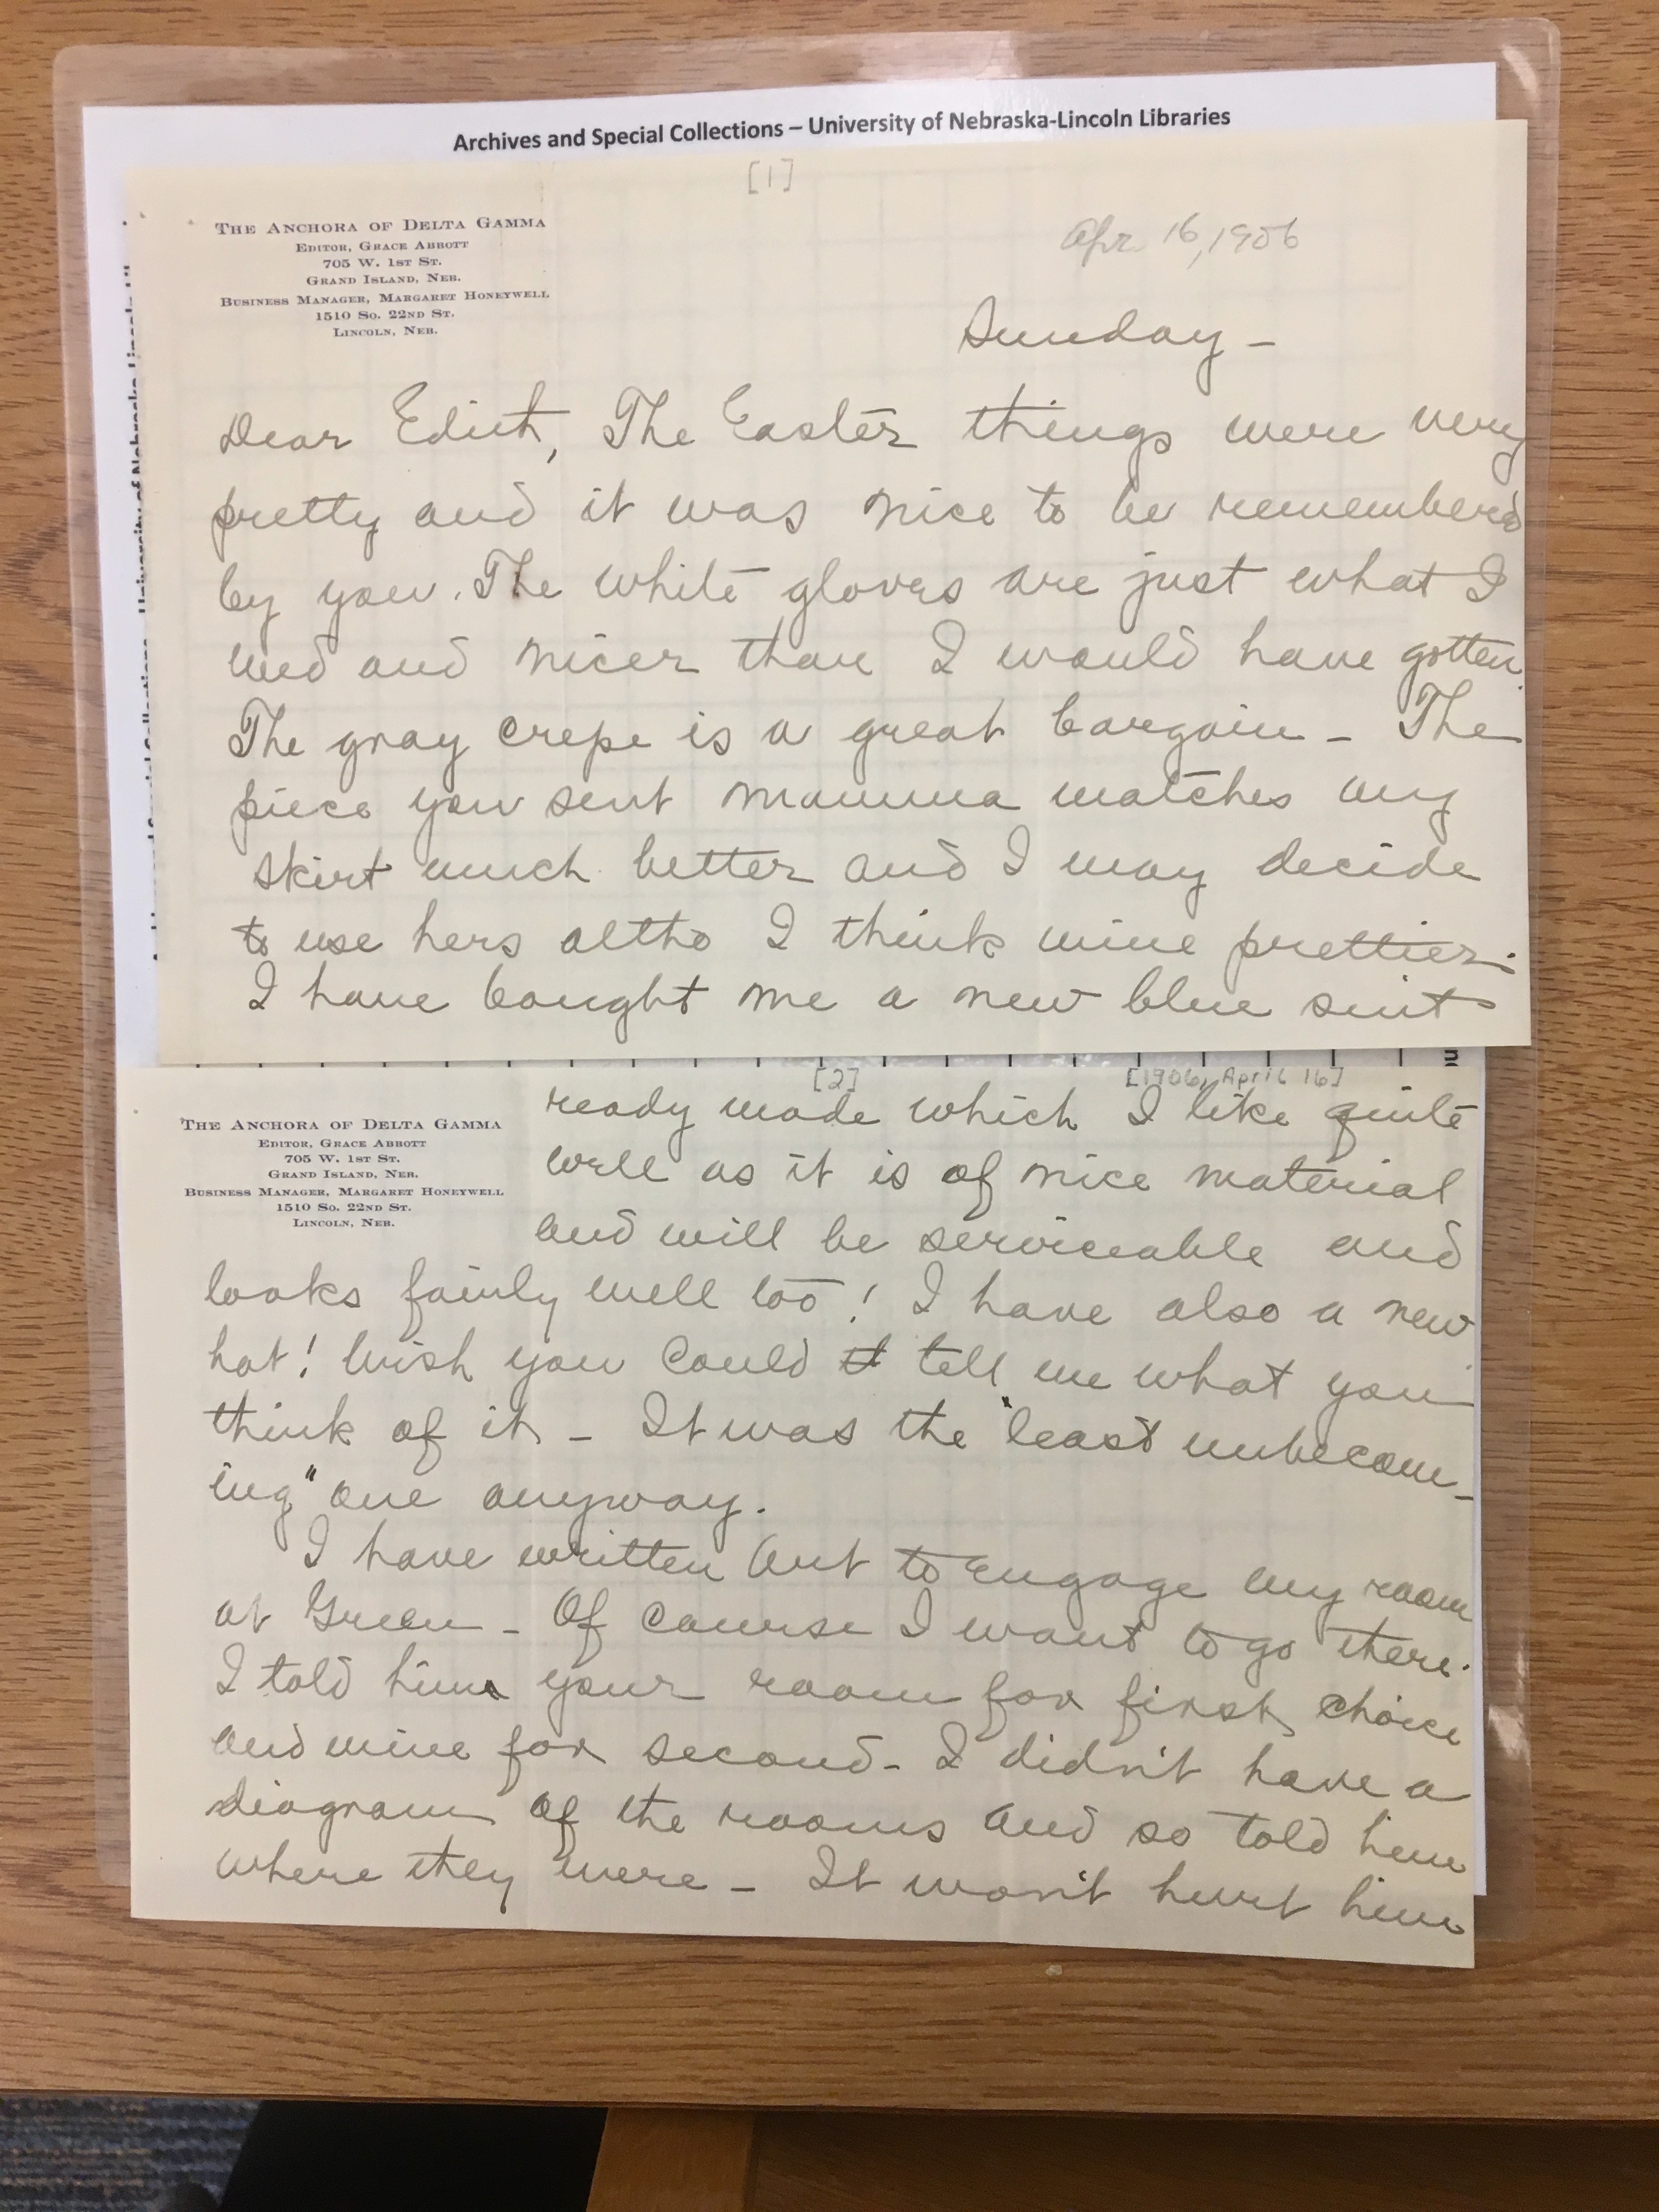 Archives and Special Collections – University of Nebraska-Lincoln Libraries
[1]
THE ANCHORA OF DELTA GAMMA
EDITOR, GRACE ABBOTT
705 W. 1ST ST.
GRAND ISLAND, NEB.
BUSINESS MANAGER, MARGARET HONEYWELL
1510 SO. 22ND ST.
LINCOLN, NEB.
Apr. 16, 1906
Sunday –
Dear Edith, The Easter things were very
pretty and it was nice to be remembered
by you. The white gloves are just what I
need and nicer than I would have gotten.
The gray crepe is a great bargain – The
piece you sent mamma matches my
skirt much better and I may decide
to use hers altho I think mine prettier.
I have bought me a new blue suit
[2]
[1906, April 16]
THE ANCHORA OF DELTA GAMMA
EDITOR, GRACE ABBOTT
705 W. 1ST ST.
GRAND ISLAND, NEB.
BUSINESS MANAGER, MARGARET HONEYWELL
1510 SO. 22ND ST.
LINCOLN, NEB.
ready made which I like quite
well as it is of nice material
and will be serviceable and
looks fairly well too! I have also a new
hat! Wish you could tell me what you
think of it – It was the "least unbecom-
ing" one anyway.
I have written out to engage my room
at Green – Of course I want to go there.
I told him your room for first choice
and mine for second – I didn't have a
diagram of the rooms and so told him
where they were – It won't hurt him